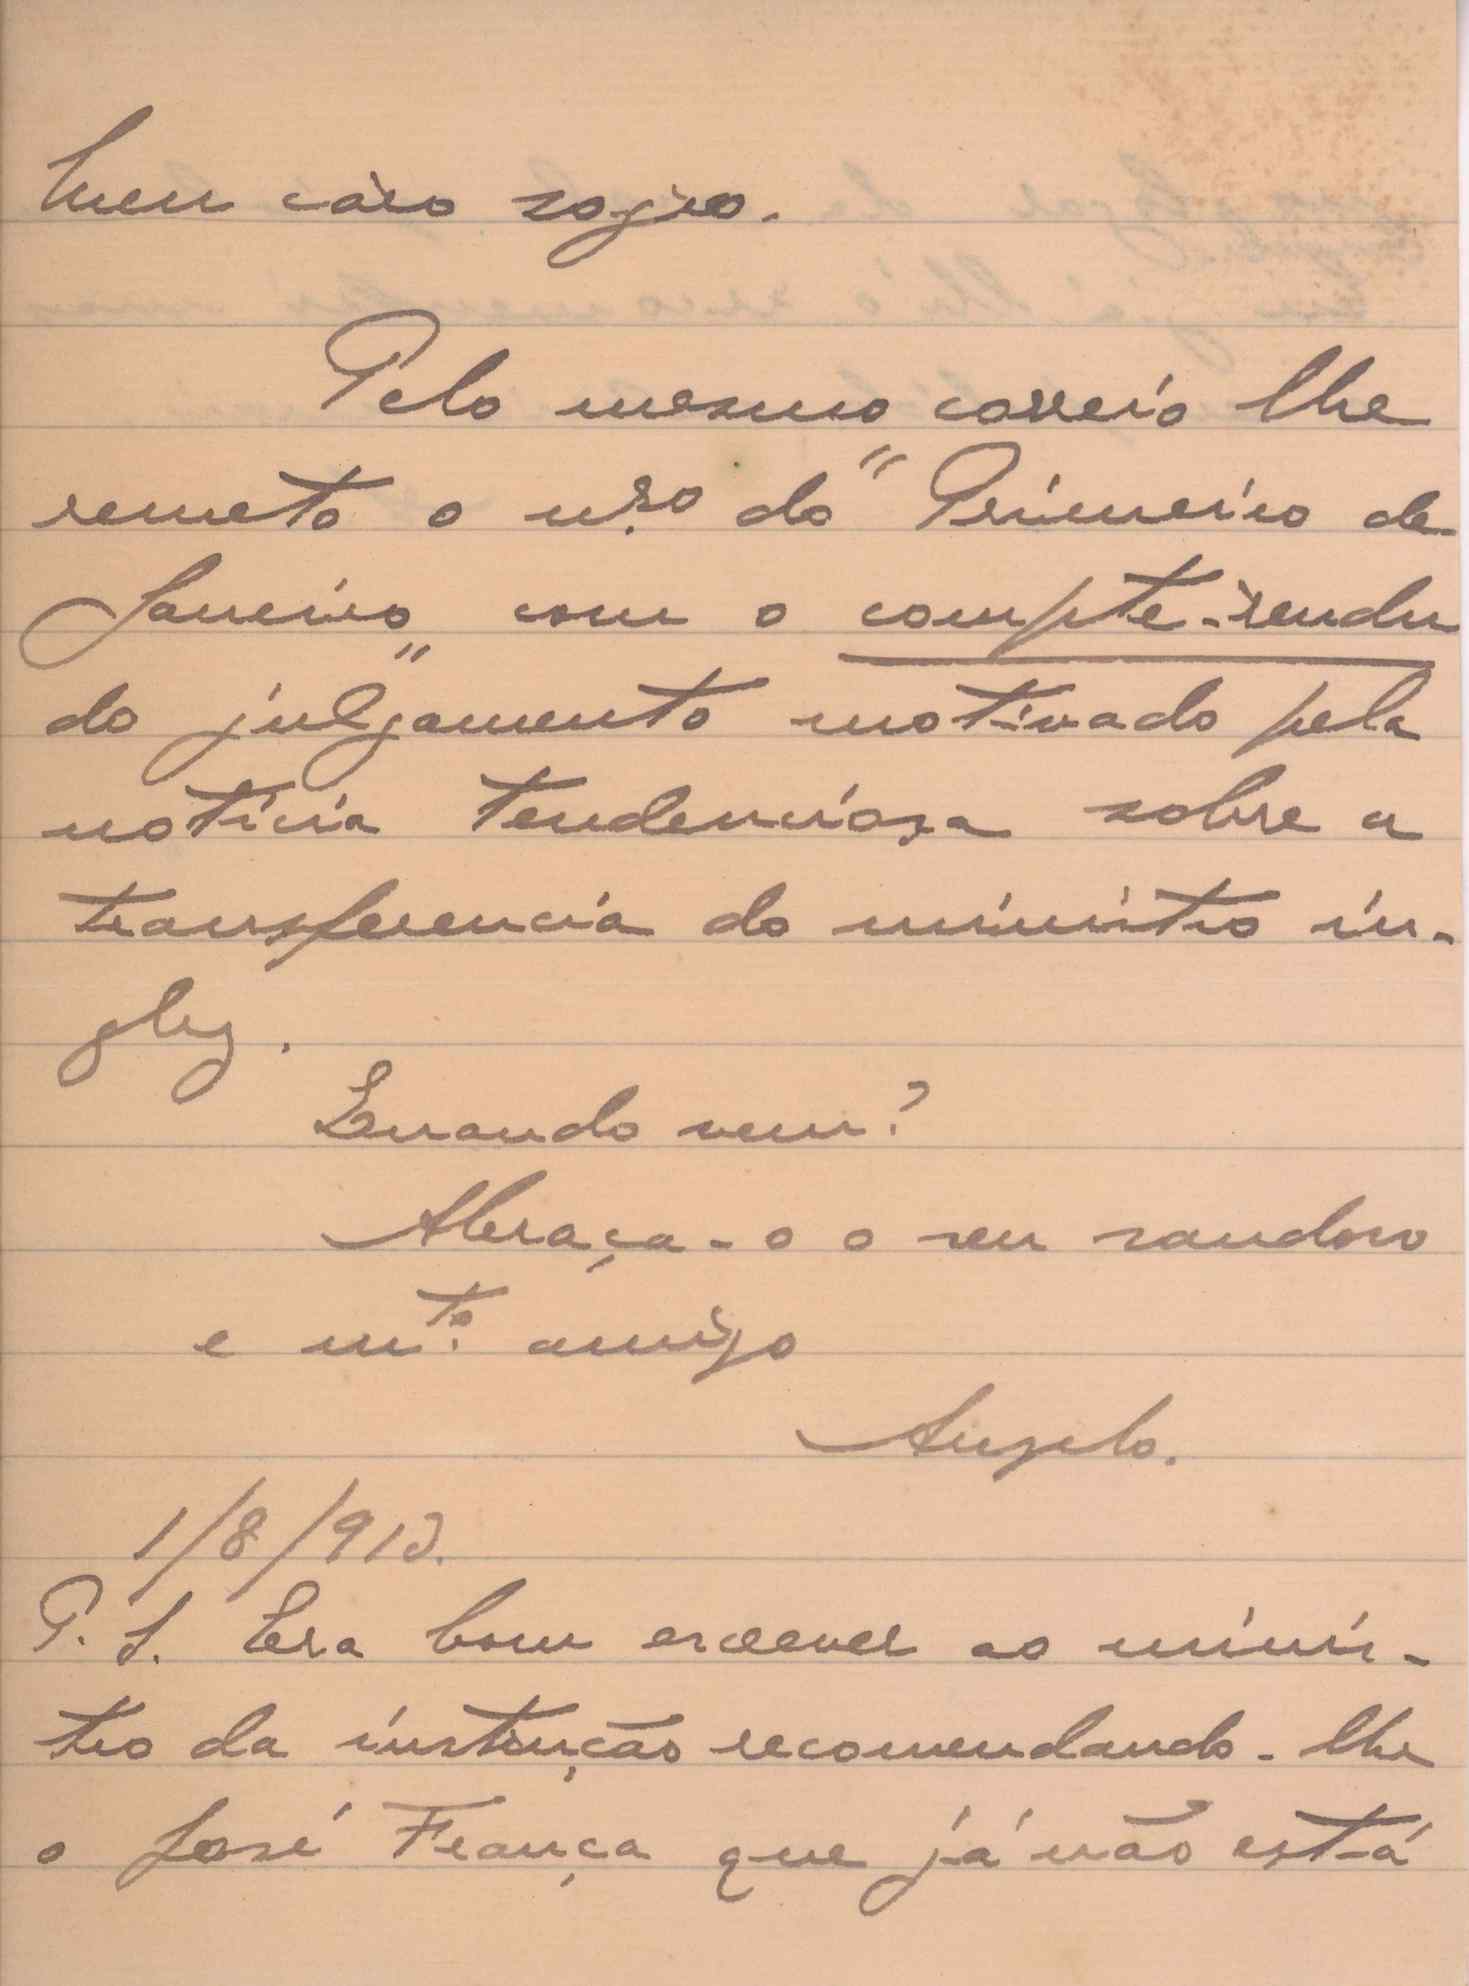 Meu cáro sogro.
Pelo mesmo correio lhe
remeto o nro do "Primeiro de
Janeiro" com o compte-rendu
do julgamento motivado pela
noticia tendenciosa sobre a
transferencia do ministro in-
glez.
Quando vem?
Abraça-o o seu saudoso
e mto. amigo
Angelo.
1/8/913.
P. S. Era bom escrever ao minis-
tro da instrução recomendando-lhe
o José França que já não está